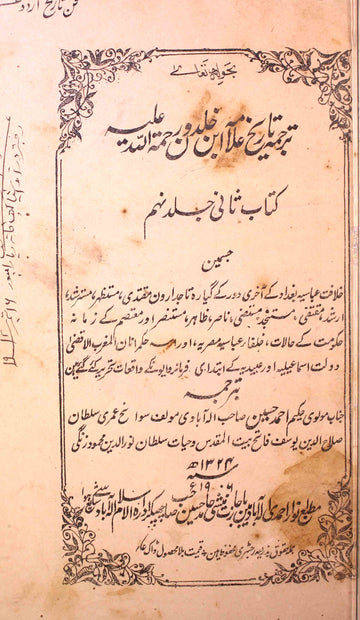 فن تاریخ اردو
بحولہ تعالے
ترجمہ تاریخ علامہ ابن خلدون رحمۃ اللہ علیہ
کتاب ثانی جلد نہم
جسمین
خلافت عباسیہ بغداد کے آخری دور کے گیارہ تاجدارون مقتدی، مستظہر، مسترشد،
راشد، مقتفی، مستنجد، مستضی، ناصر، ظاہر، مستنصر اور مستعصم کے زمانہ
حکومت کے حالات، خلفار عباسیہ مصریہ، اور حکمرانان المغرب الاقصٰی
دولت اسماعیلیہ اور عبیدیہ کے ابتدائی فرمانرواؤنکے واقعات تحریر کئے گئے ہین
مترجمہ
جناب مولوی حکیم احمد حسین صاحب الہ آبادی مولف سوانح عمری سلطان
صلاح الدین یوسف فاتح بیت المقدس وحیات سلطان نور الدین محمود زنگی
۱۳۲۴ھ
سنہ ۱۹۰۶ء
مطبع نور احمدی الہ آباد مین حسین صاحب چھپکر ادارہ الاسلام الہ آباد سے شائع ہوا
حقوق بذریعہ رجسٹری محفوظ ہین قیمت بلا محصول ڈاک